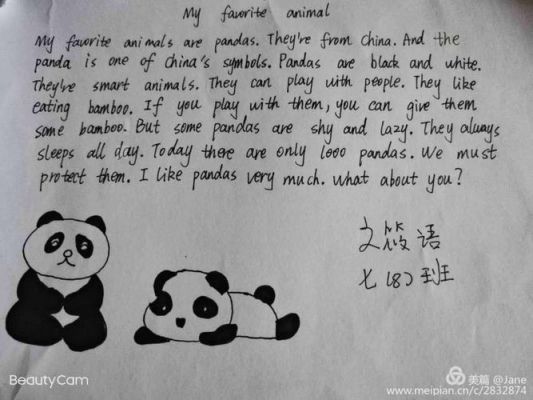 My favorite animal
My favorite animals are pandas. They're from China. And the
panda is one of China's symbols. Pandas are black and white.
They're smart animals. They can play with people. They like
eating bamboo. If you play with them, you can give them
some bamboo. But some pandas are shy and lazy. They always
sleeps all day. Today there are only 1000 pandas. We must
protect them. I like pandas very much. What about you?
文筱语
七(8)班
BeautyCam
美篇 @Jane
www.meipian.cn/c/2832874